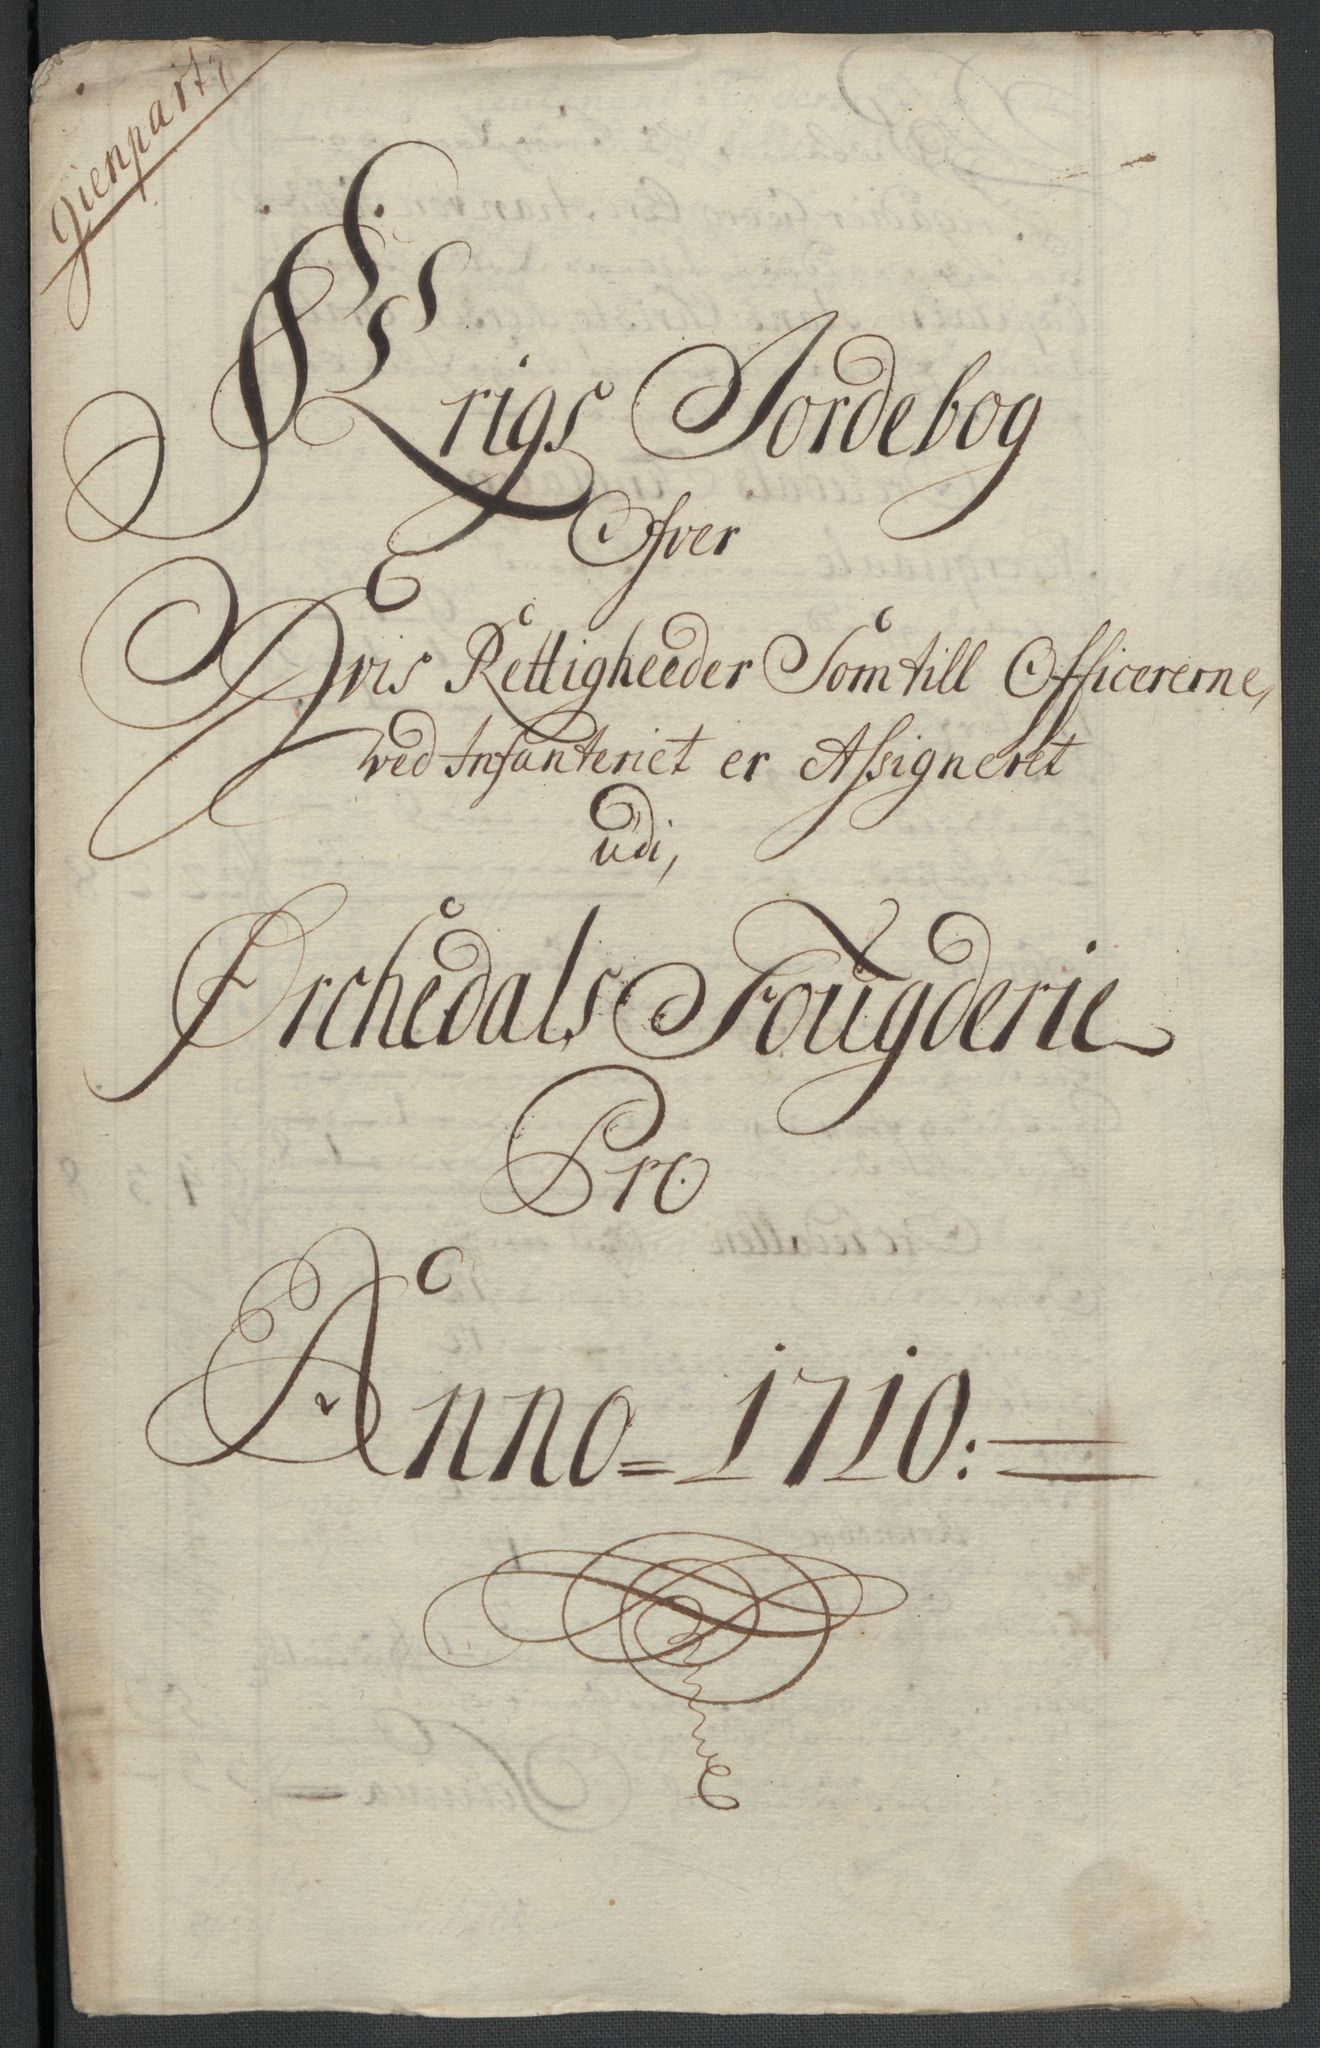 Gienpart,
Krigs Jordebog
Ofver
Hvis Rettigheeder Som till Officererne,
ved Infanteriet er Assigneret
udi,
Ørchedals Fougderie
Pro
Anno = 1710: